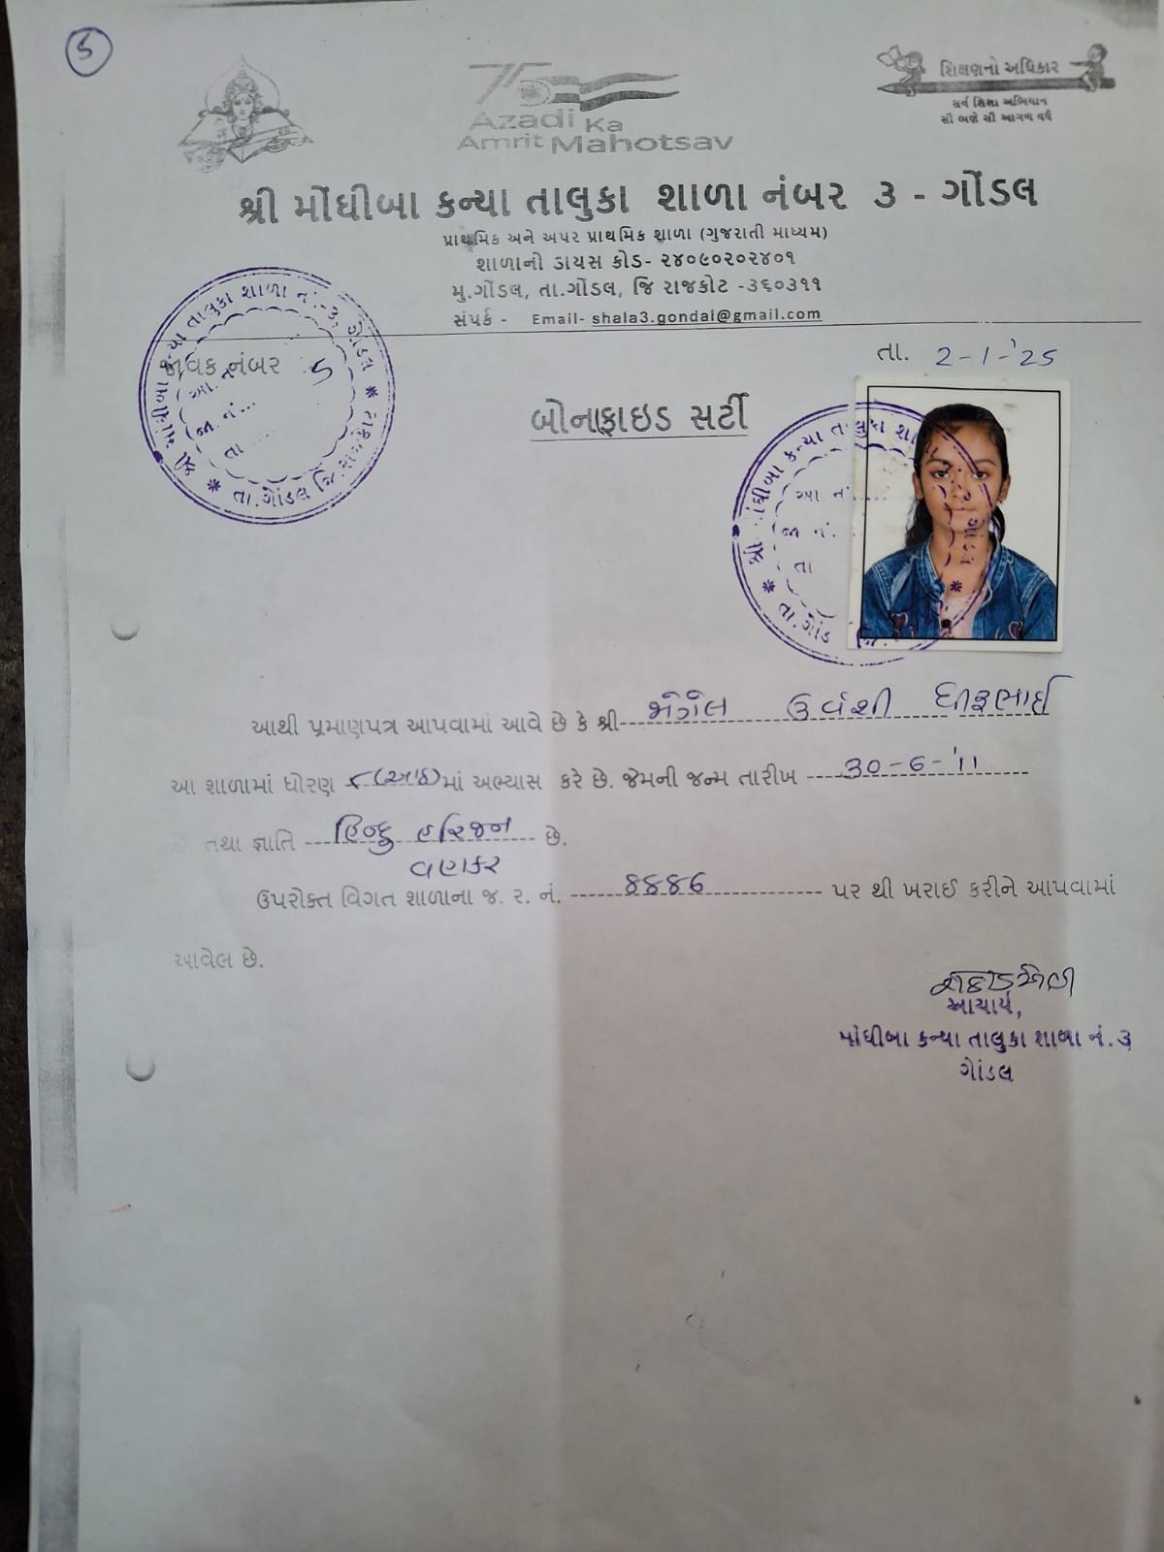 5
75
Azadi Ka
Amrit Mahotsav
શિક્ષણનો અધિકાર
સર્વ શિક્ષા અભિયાન
સૌ ભણે સૌ આગળ વધે
શ્રી મોંઘીબા કન્યા તાલુકા શાળા નંબર ૩ - ગોંડલ
પ્રાથમિક અને અપર પ્રાથમિક શાળા (ગુજરાતી માધ્યમ)
શાળાનો ડાયસ કોડ- ૨૪૦૯૦૨૦૨૪૦૧
મુ.ગોંડલ, તા.ગોંડલ, જિ રાજકોટ -૩૬૦૩૧૧
સંપર્ક - Email- shala3.gondal@gmail.com
જાવક નંબર 5
તા. 2-1-'25
બોનાફાઇડ સર્ટી
આથી પ્રમાણપત્ર આપવામાં આવે છે કે શ્રી ઉર્વશી
આ શાળામાં ધોરણ ૮(આઠ)માં અભ્યાસ કરે છે. જેમની જન્મ તારીખ 30-6-'11
તથા જ્ઞાતિ હિન્દુ હરિજન છે.
વણકર
ઉપરોક્ત વિગત શાળાના જ. ર. નં. પર થી ખરાઈ કરીને આપવામાં
આવેલ છે.
આચાર્ય,
મોંઘીબા કન્યા તાલુકા શાળા નં. ૩
ગોંડલ